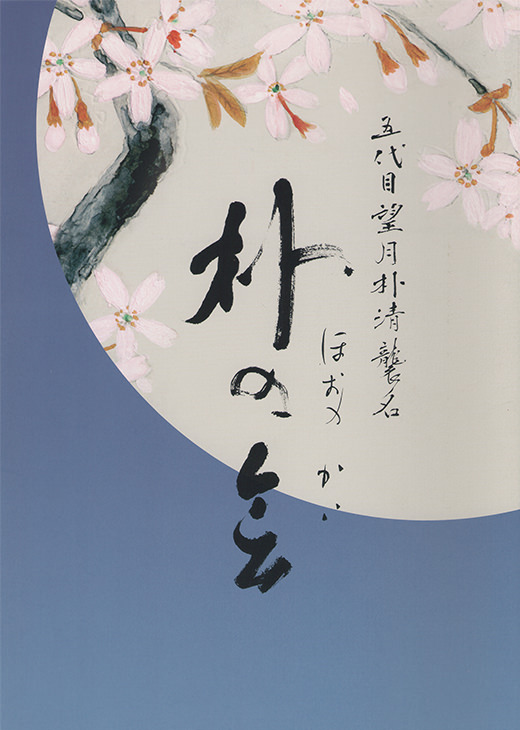 五代目望月朴清襲名
朴の会
ほおの かい